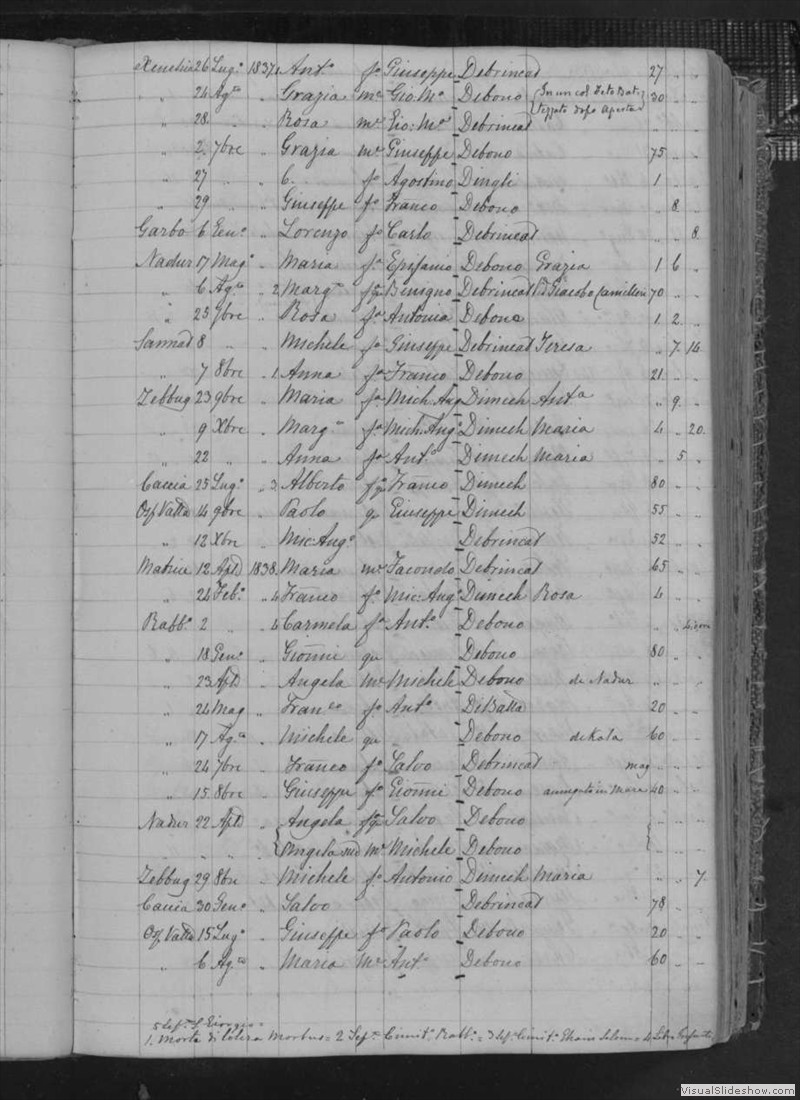 Xeuchia 26 Lug.o 1837. Ant.o fo Giuseppe Debrincat 27 " "
" 24 Ag.to " Grazia me Gio: Ma Debono 30 " "
" 28 " " Rosa me Gio: Ma Debrincat " " "
" 2 7bre " Grazia me Giuseppe Debono 75 " "
" 27 " " G. fo Agostino Dingli 1 " "
" 29 " " Giuseppe fo Franco Debono " 8 "
Garbo 6 Gen.o " Lorenzo fo Carlo Debrincat " " 8
Nadur 17 Mag.o " Maria fa Epifanio Debono Grazia 1 6 "
" 6 Ag.to " 2 Marg.ta Benigno Debrincat Giacobo Camilleri 70 " "
" 25 7bre " Rosa fa Antonia Debono 1 2 "
Sannat 8 " " Michele fo Giuseppe Debrincat Teresa " 7 14
" 7 8bre " 1 Anna fa Franco Debono 21 " "
Zebbug 23 9bre " Maria fa Mich. Ang. Dimech Ant.a " 9 "
" 9 Xbre " Marg.ta fa Mich. Ang.o Dimech Maria 4 " 20
" 22 " " Anna fa Ant.o Dimech Maria " 5 "
Caccia 25 Lug.o " 3 Alberto Franco Dimech 80 " "
Osp Vatta 14 9bre " Paolo q Giuseppe Dimech 55 " "
" 12 Xbre " Mic: Ang.o Debrincat 52 " "
Matrice 12 Aple 1838. Maria me Facondo Debrincat 65 " "
" 24 Feb.o " 4 Franco fo Mic: Ang.o Dimech Rosa 4 " "
Rabb.o 2 " " 4 Carmela fa Ant.o Debono " "
" 18 Gen.o " Gionni qu Debono 80 " "
" 23 Aple " Angela me Michele Debono de Nadur " " "
" 24 Mag " Franco fo Ant.o DiBatta 20 " "
" 17 Ag.to " Michele qu Debono di Kala 60 " "
" 24 7bre " Franco fo Salvo Debrincat mag " "
" 15 8bre " Giuseppe fo Gionni Debono annegato in Mare 40 " "
Nadur 22 Aple " Angela Salvo Debono " " "
" " " Angela me Michele Debono " " "
Zebbug 29 8bre " Michele fo Antonio Dimech Maria " " 7
Caccia 30 Gen.o " Salvo Debrincat 78 " "
Osp Vatta 15 Lug.o " Giuseppe fo Paolo Debono 20 " "
" 6 Ag.to " Maria me Ant.o Debono 60 " "
5 Sep.to S. Giorgio
1. Morte di Colera Morbus = 2 Sep.to Cimit.o Rabb.o = 3 Sep.to Cimit.o
VisualSlideshow.com